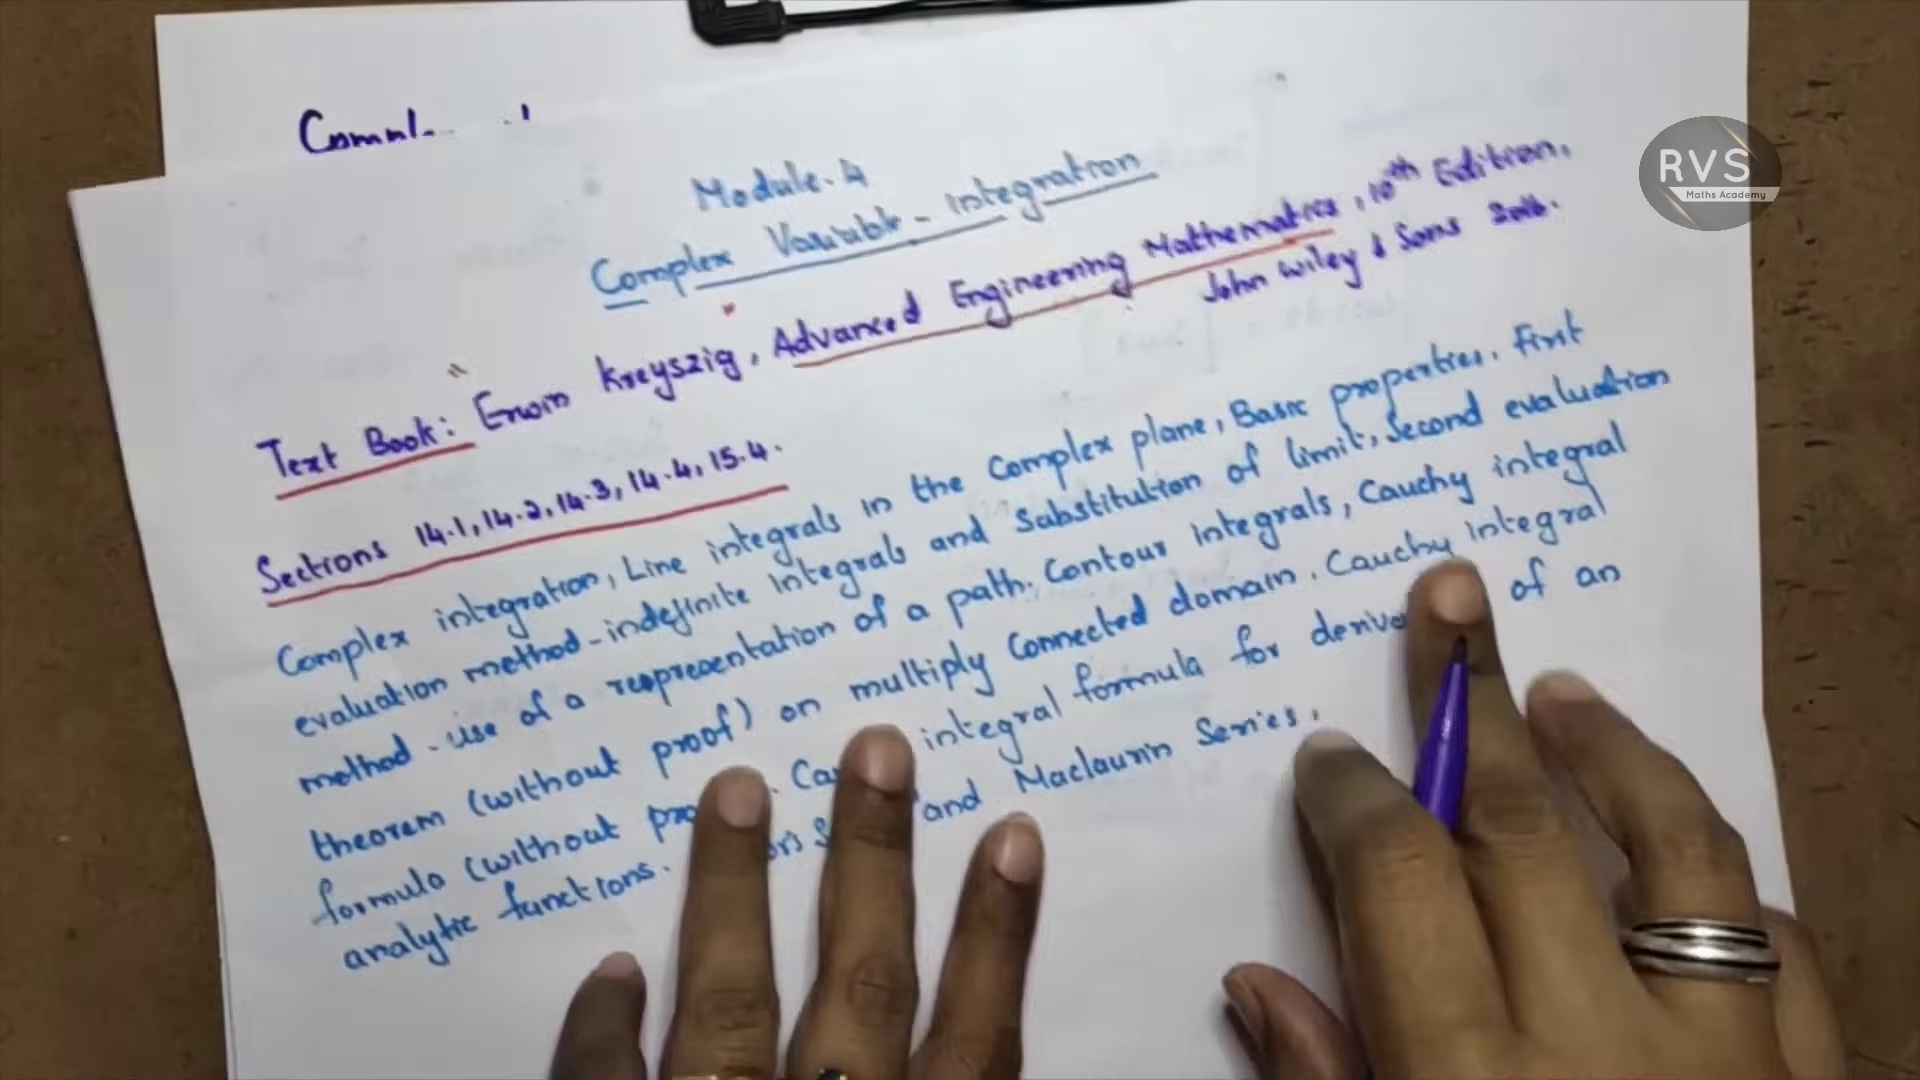 RVS
Maths Academy
Module-4
Complex Variable - Integration
Text Book: Erwin Kreyszig, Advanced Engineering Mathematics, 10th Edition,
John Wiley & Sons 2016.
Sections 14.1, 14.2, 14.3, 14.4, 15.4.
Complex integration, Line integrals in the complex plane, Basic properties. First
evaluation method - indefinite integrals and substitution of limit, Second evaluation
method - use of a representation of a path. Contour integrals, Cauchy integral
theorem (without proof) on multiply connected domain. Cauchy integral
formula (without integral formula for of an
analytic functions. and Maclaurin Series.